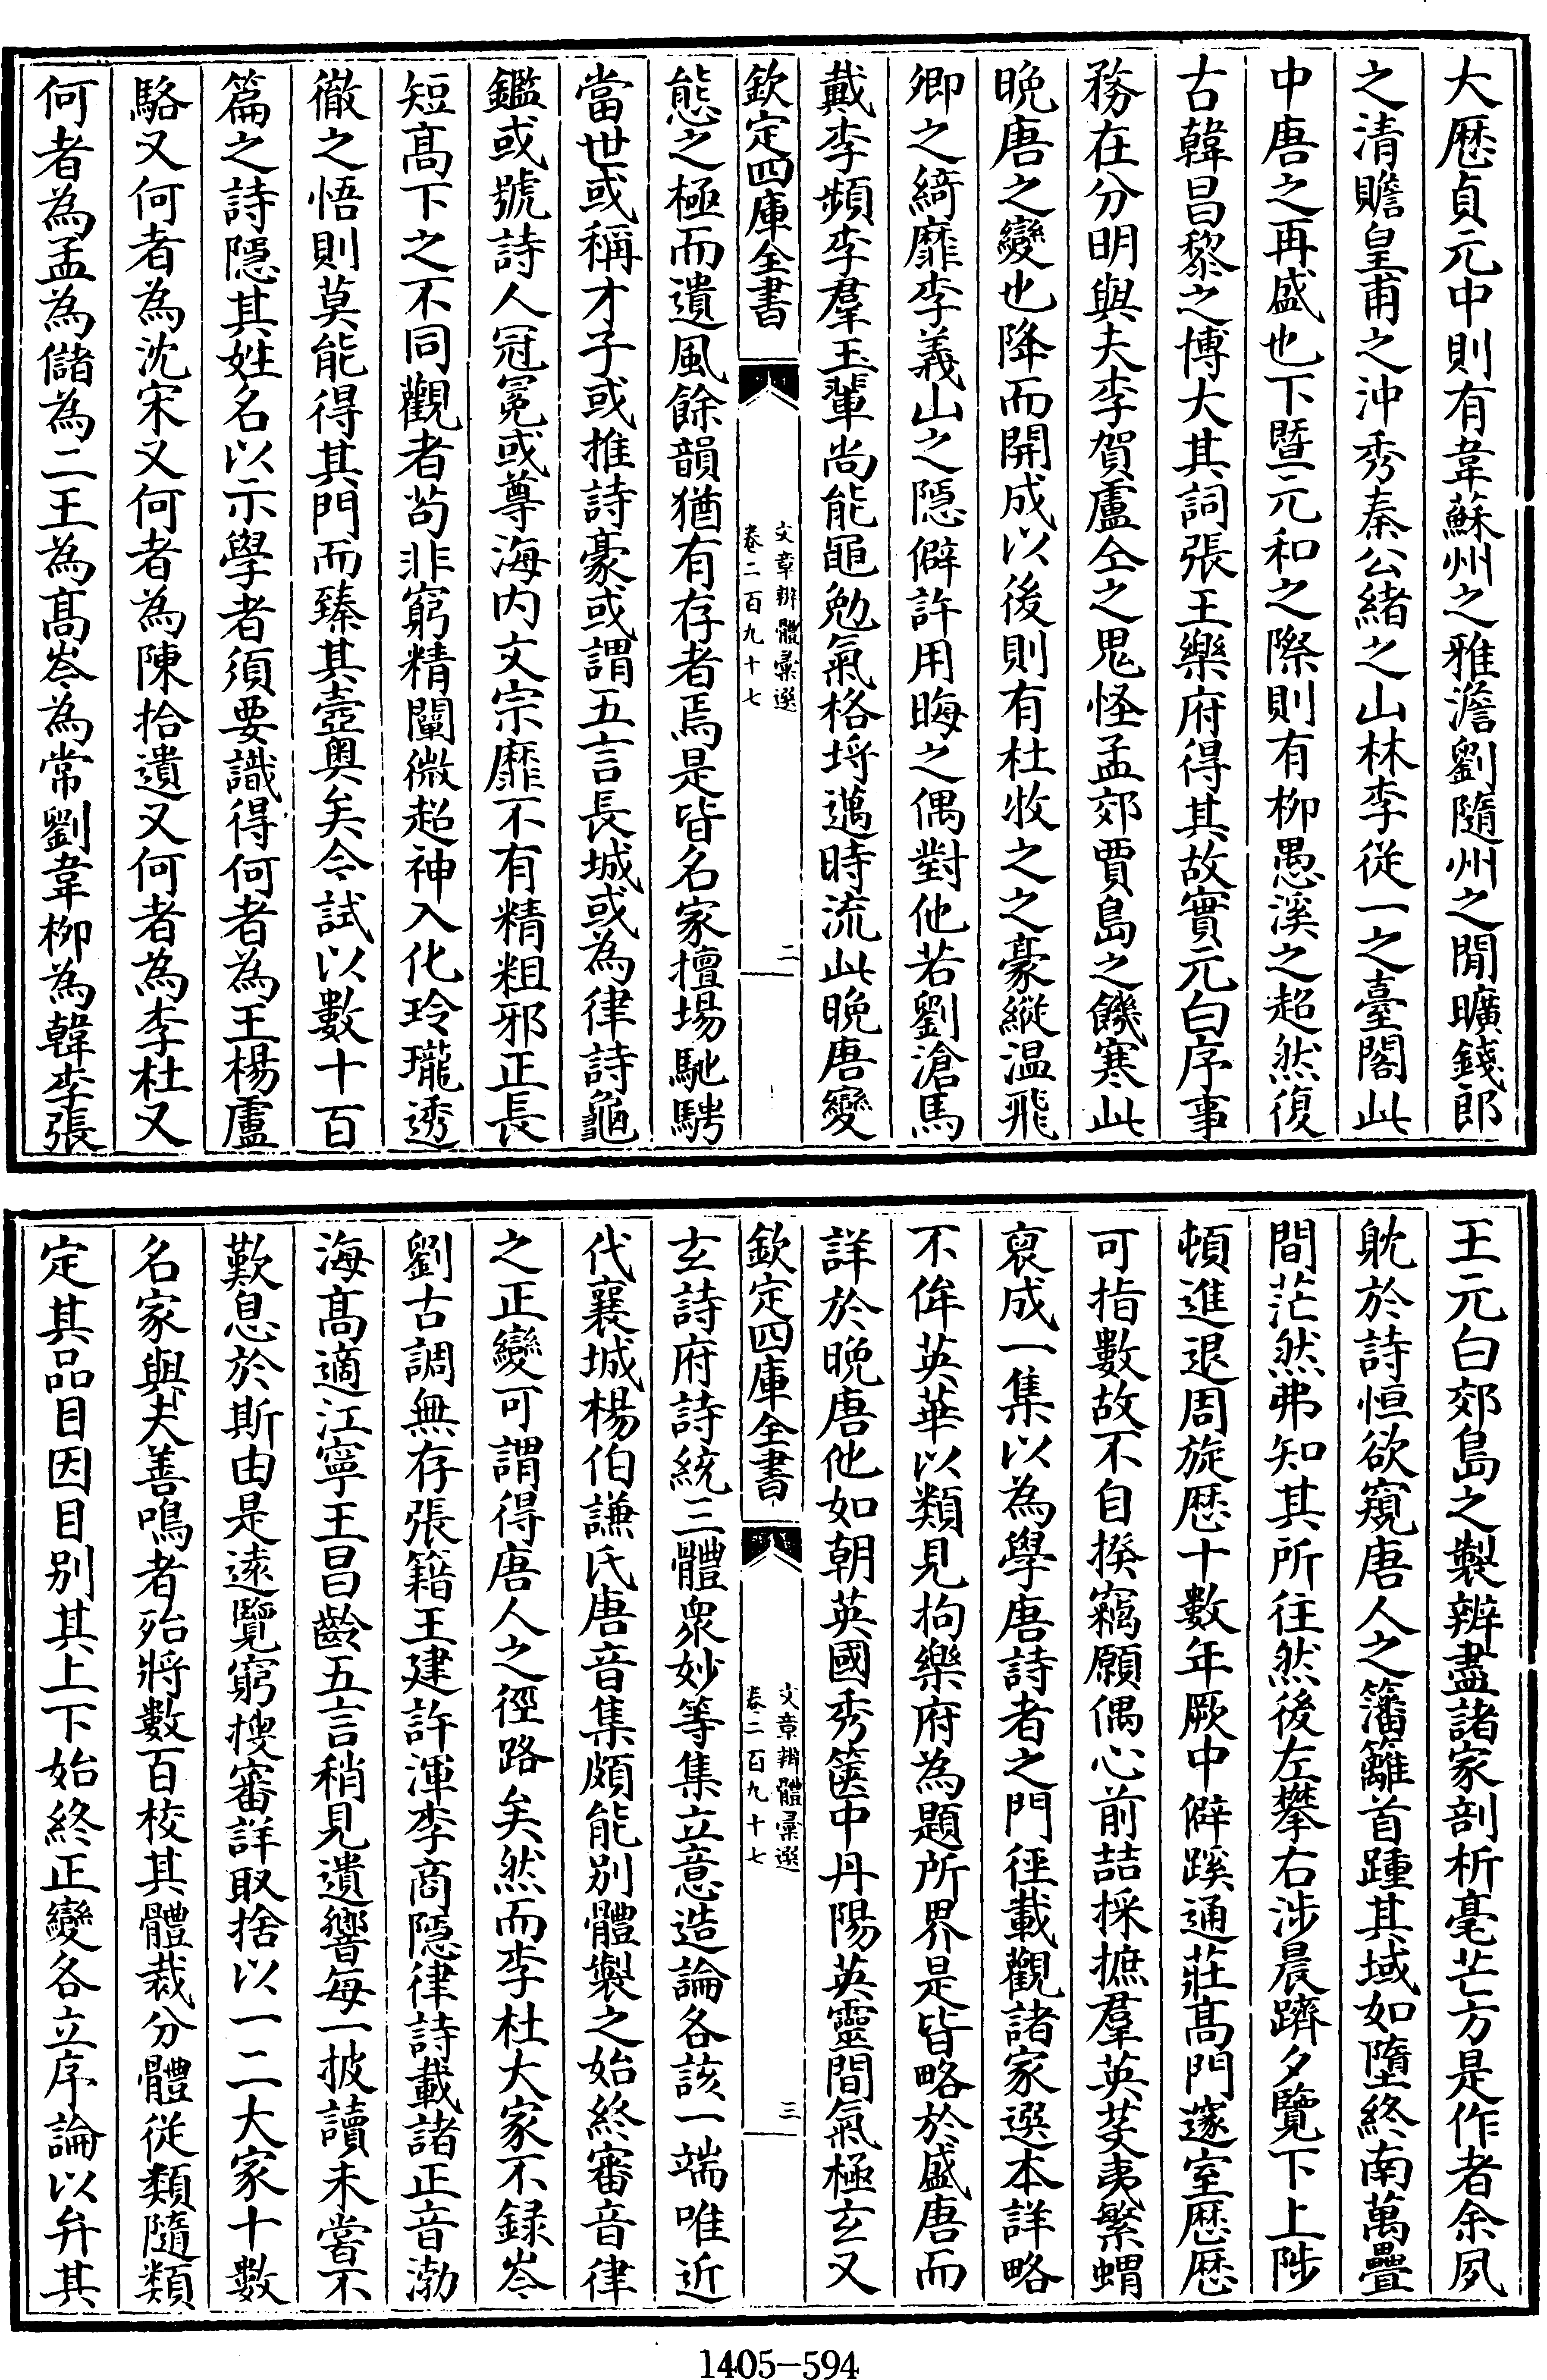 大厯貞元中則有韋蘇州之雅澹劉隨州之閒曠錢郎
之清贍皇甫之沖秀秦公緒之山林李從一之臺閣此
中唐之再盛也下暨元和之際則有柳愚溪之超然復
古韓昌黎之博大其詞張王樂府得其故實元白序事
務在分明與夫李賀盧仝之鬼怪孟郊賈島之饑寒此
晚唐之變也降而開成以後則有杜牧之之豪縱温飛
卿之綺靡李義山之隱僻許用晦之偶對他若劉滄馬
戴李頻李羣玉輩尚能黽勉氣格埓邁時流此晚唐變
欽定四庫全書
文章辨體彚選
卷二百九十七
二
態之極而遺風餘韻猶有存者焉是皆名家擅場馳騁
當世或稱才子或推詩豪或謂五言長城或為律詩龜
鑑或號詩人冠冕或尊海内文宗靡不有精粗邪正長
短髙下之不同觀者苟非窮精闡微超神入化玲瓏透
徹之悟則莫能得其門而臻其壼奥矣今試以數十百
篇之詩隱其姓名以示學者須要識得何者為王楊盧
駱又何者為沈宋又何者為陳拾遺又何者為李杜又
何者為孟為儲為二王為髙岑為常劉韋柳為韓李張
王元白郊島之製辨盡諸家剖析毫芒方是作者余夙
躭於詩恒欲窺唐人之籓籬首踵其域如墮終南萬疊
間茫然弗知其所往然後左攀右涉晨躋夕覽下上陟
頓進退周旋厯十數年厥中僻蹊通莊髙門邃室厯厯
可指數故不自揆竊願偶心前喆採摭羣英芟夷繁蝟
裒成一集以為學唐詩者之門徑載觀諸家選本詳略
不侔英華以類見拘樂府為題所界是皆略於盛唐而
詳於晚唐他如朝英國秀篋中丹陽英靈間氣極玄又
欽定四庫全書
文章辨體彚選
卷二百九十七
三
玄詩府詩統三體衆妙等集立意造論各該一端唯近
代襄城楊伯謙氏唐音集頗能别體製之始終審音律
之正變可謂得唐人之徑路矣然而李杜大家不録岑
劉古調無存張籍王建許渾李商隱律詩載諸正音渤
海髙適江寧王昌齡五言稍見遺響每一披讀未嘗不
歎息於斯由是逺覽窮搜審詳取捨以一二大家十數
名家與夫善鳴者殆將數百校其體裁分體從類隨類
定其品目因目别其上下始終正變各立序論以弁其
1405—594